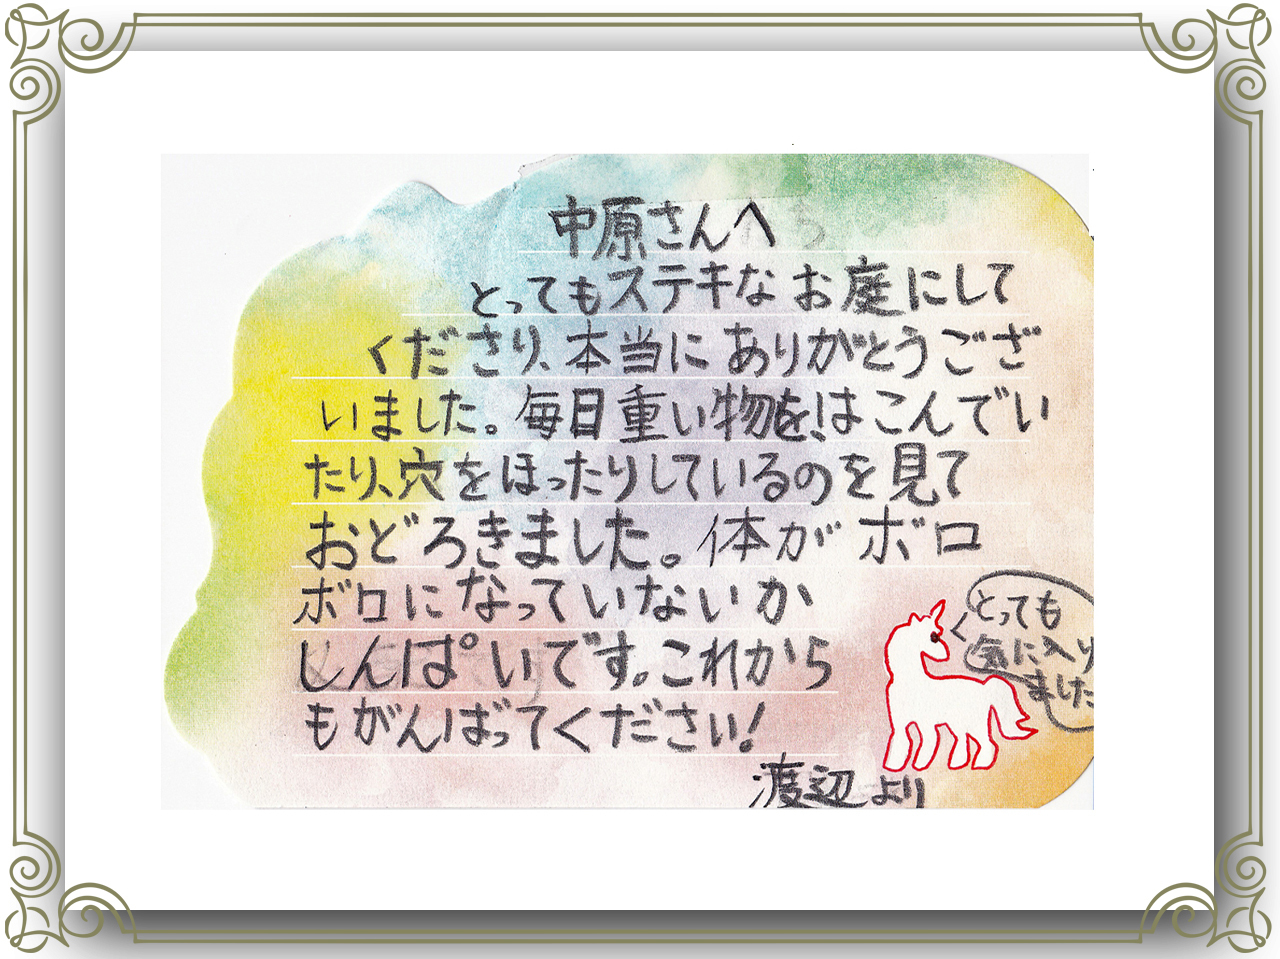 中原さんへ
とってもステキなお庭にして
くださり、本当にありがとうござ
いました。毎日重い物を、はこんでい
たり、穴をほったりしているのを見て
おどろきました。体がボロ
ボロになっていないか
しんぱいです。これから
もがんばってください!
とっても
気に入り
ました
渡辺より